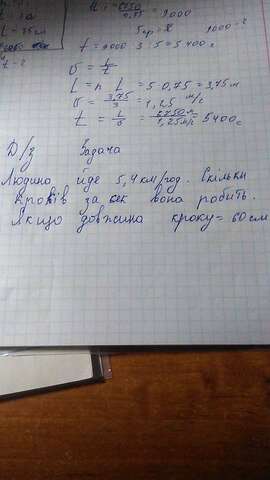 = 9000
t = 9000 · 3 : 5 = 5400 c
L = 75 см
υ = L/t
L = n L = 5 · 0,75 = 3,75 м
υ = 3,75/3 = 1,25 м/с
t = L/υ = 6750 м/1,25 м/с = 5400 с
Д/з Задача
Людина йде 5,4 км/год. Скільки
кроків за сек вона робить.
Якщо довжина кроку = 60 см